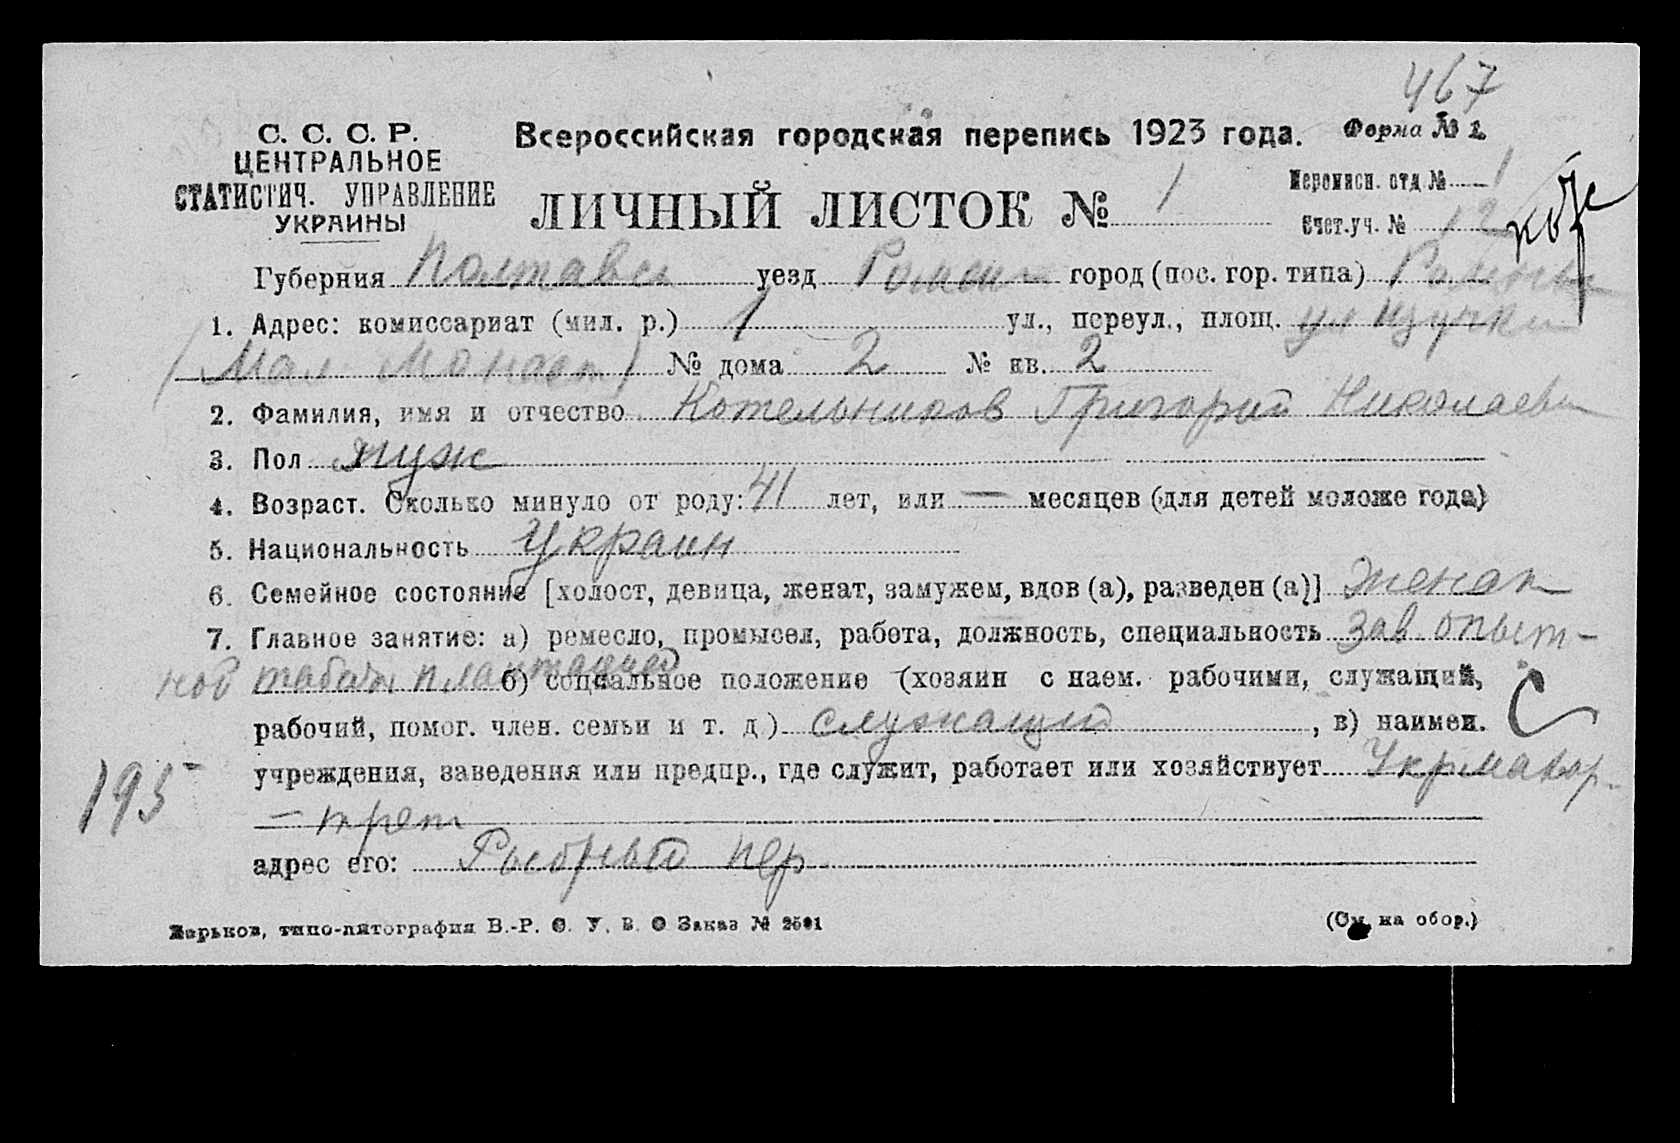 467
С. С. С. Р.
ЦЕНТРАЛЬНОЕ
СТАТИСТИЧ. УПРАВЛЕНИЕ
УКРАИНЫ
Всероссийская городская перепись 1923 года. Форма № 1.
ЛИЧНЫЙ ЛИСТОК № 1
Переписн. отд. № 1
Счет. уч. № 12
Губерния Полтавск уезд Роменск город (пос. гор. типа) Ромны
1. Адрес: комиссариат (мил. р.) 1 ул., переул., площ. ул
(Мал Монаст) № дома 2 № кв. 2
2. Фамилия, имя и отчество Котельников Григорий Николаевич
3. Пол муж
4. Возраст. Сколько минуло от роду: 41 лет, или — месяцев (для детей моложе года)
5. Национальность Украин
6. Семейное состояние [холост, девица, женат, замужем, вдов (а), разведен (а)] женат
7. Главное занятие: а) ремесло, промысел, работа, должность, специальность зав. опыт-
ной табачн плантацией б) социальное положение (хозяин с наем. рабочими, служащий,
рабочий, помог. член. семьи и т. д.) служащий, в) наимен.
учреждения, заведения или предпр., где служит, работает или хозяйствует
195
— трест
адрес его: пер
Харьков, типо-литография В.-Р. С. У. В. О Заказ № 2591
(См. на обор.)